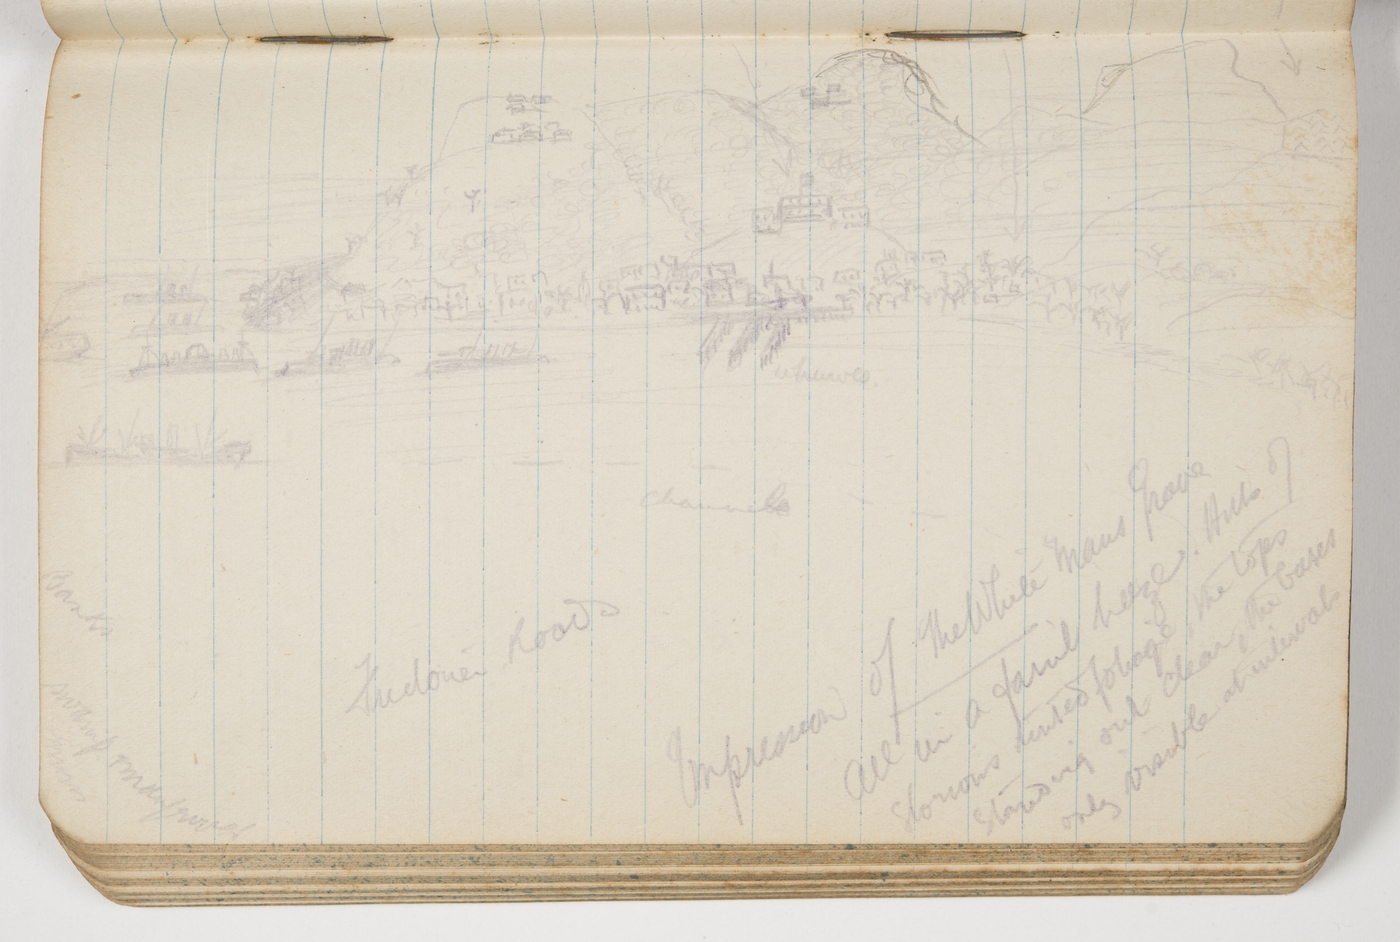 wharves.
channels
Banks
Roads
Impression of The White Mans Grave
All in a faint heeze. Hills of
glorious tinted foliage, the tops
standing out clear & the bases
only visible at intervals